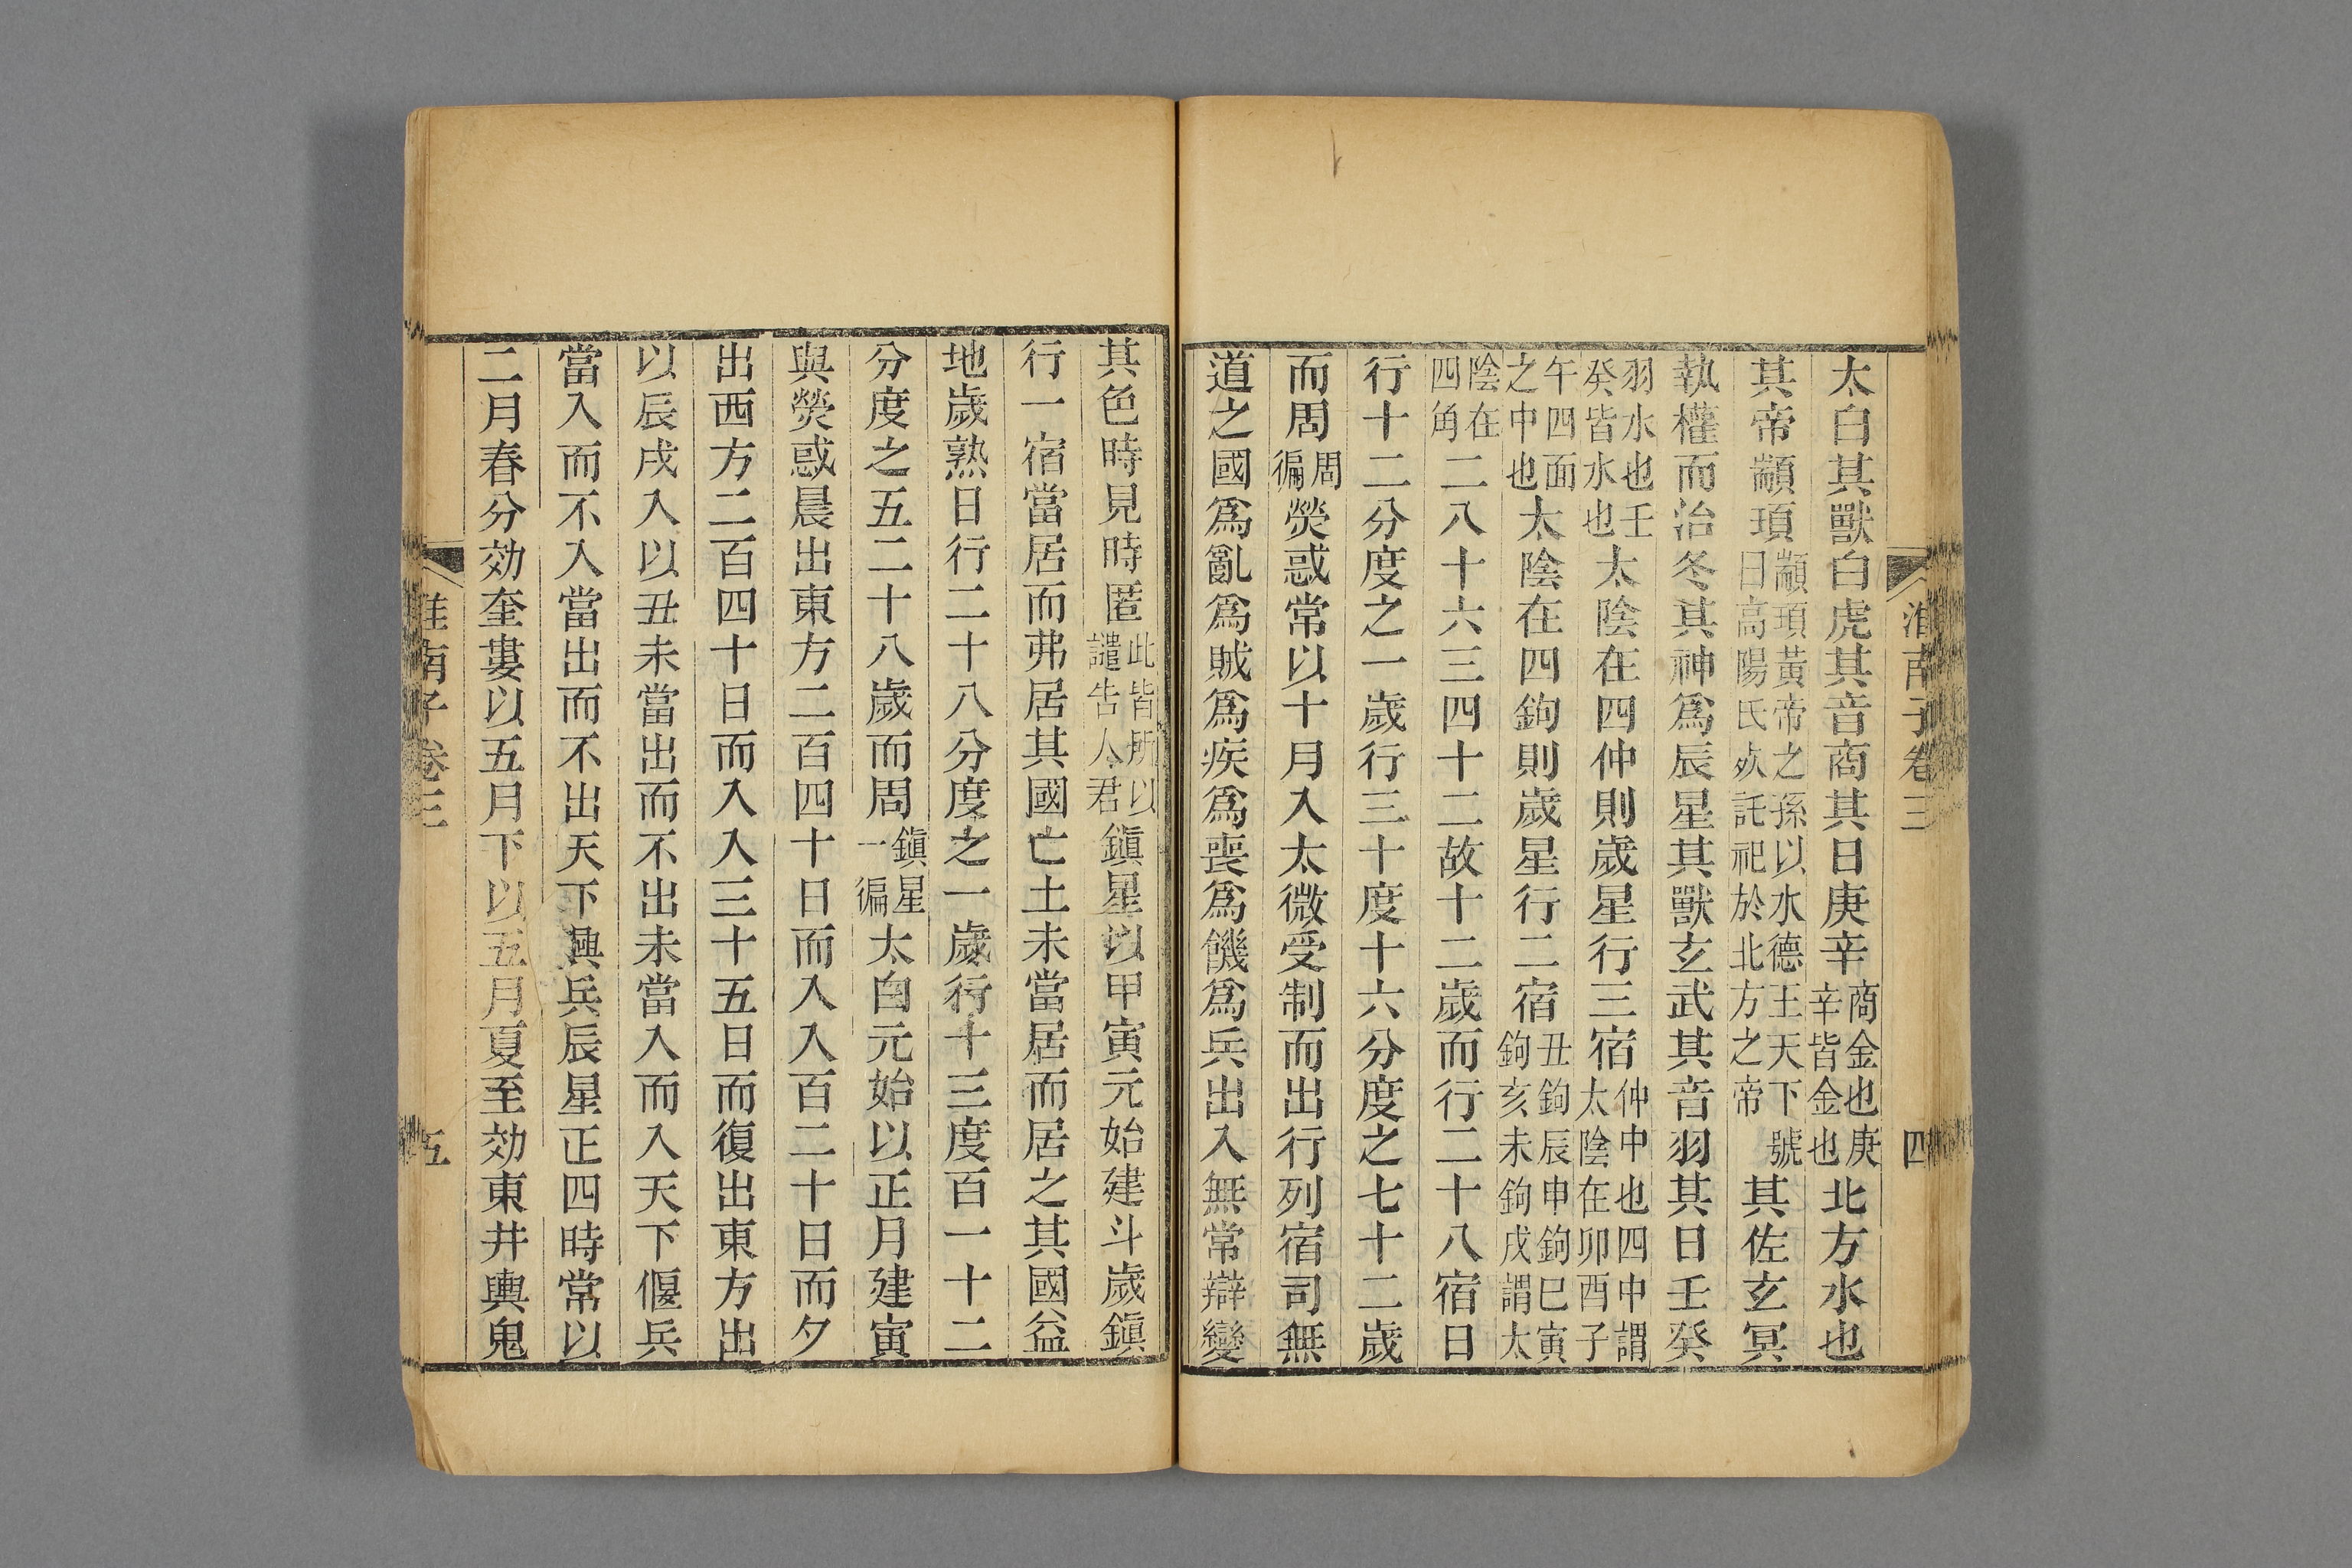 淮南子卷三　四
太白其獸白虎其音商其日庚辛商金也庚辛皆金也北方水也
其帝顓頊顓頊黃帝之孫以水德王天下號曰高陽氏死託祀於北方之帝其佐玄冥
執權而治冬其神爲辰星其獸玄武其音羽其日壬癸
羽水也壬癸皆水也太陰在四仲則歲星行三宿仲中也四中謂太陰在卯酉子
午四面之中也太陰在四鉤則歲星行二宿丑鉤辰申鉤巳寅鉤亥未鉤戌謂太
陰在四角二八十六三四十二故十二歲而行二十八宿日
行十二分度之一歲行三十度十六分度之七十二歲
而周周徧熒惑常以十月入太微受制而出行列宿司無
道之國爲亂爲賊爲疾爲喪爲饑爲兵出入無常辯變
其色時見時匿此皆所以譴告人君鎭星以甲寅元始建斗歲鎭
行一宿當居而弗居其國亡土未當居而居之其國益
地歲熟日行二十八分度之一歲行十三度百一十二
分度之五二十八歲而周鎭星一徧太白元始以正月建寅
與熒惑晨出東方二百四十日而入入百二十日而夕
出西方二百四十日而入入三十五日而復出東方出
以辰戌入以丑未當出而不出未當入而入天下偃兵
當入而不入當出而不出天下興兵辰星正四時常以
二月春分効奎婁以五月下以五月夏至効東井輿鬼
淮南子卷三　五